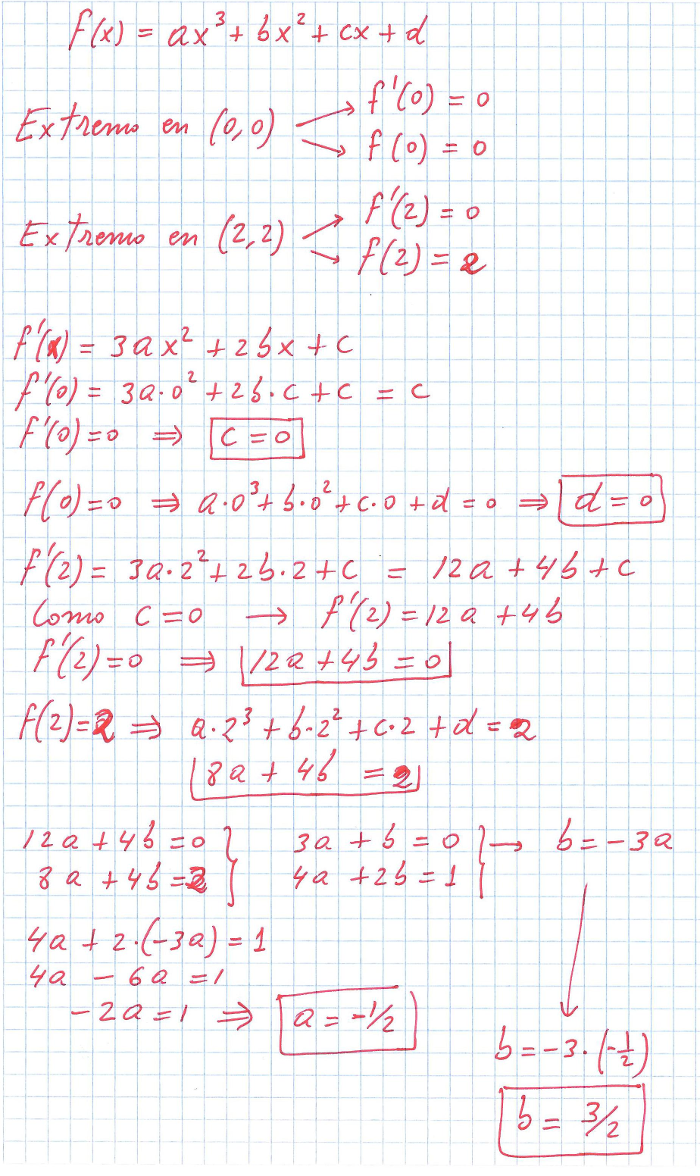 f(x) = ax³ + bx² + cx + d
Extremo en (0,0) → f'(0) = 0
→ f(0) = 0
Extremo en (2,2) → f'(2) = 0
→ f(2) = 2
f'(x) = 3ax² + 2bx + c
f'(0) = 3a·0² + 2b·c + c = c
f'(0) = 0 ⇒ c = 0
f(0) = 0 ⇒ a·0³ + b·0² + c·0 + d = 0 ⇒ d = 0
f'(2) = 3a·2² + 2b·2 + c = 12a + 4b + c
Como c = 0 → f'(2) = 12a + 4b
f'(2) = 0 ⇒ 12a + 4b = 0
f(2) = 2 ⇒ a·2³ + b·2² + c·2 + d = 2
8a + 4b = 2
12a + 4b = 0 } 3a + b = 0 } → b = -3a
8a + 4b = 2 } 4a + 2b = 1 }
4a + 2·(-3a) = 1
4a - 6a = 1
-2a = 1 ⇒ a = -1/2
b = -3·(-1/2)
b = 3/2